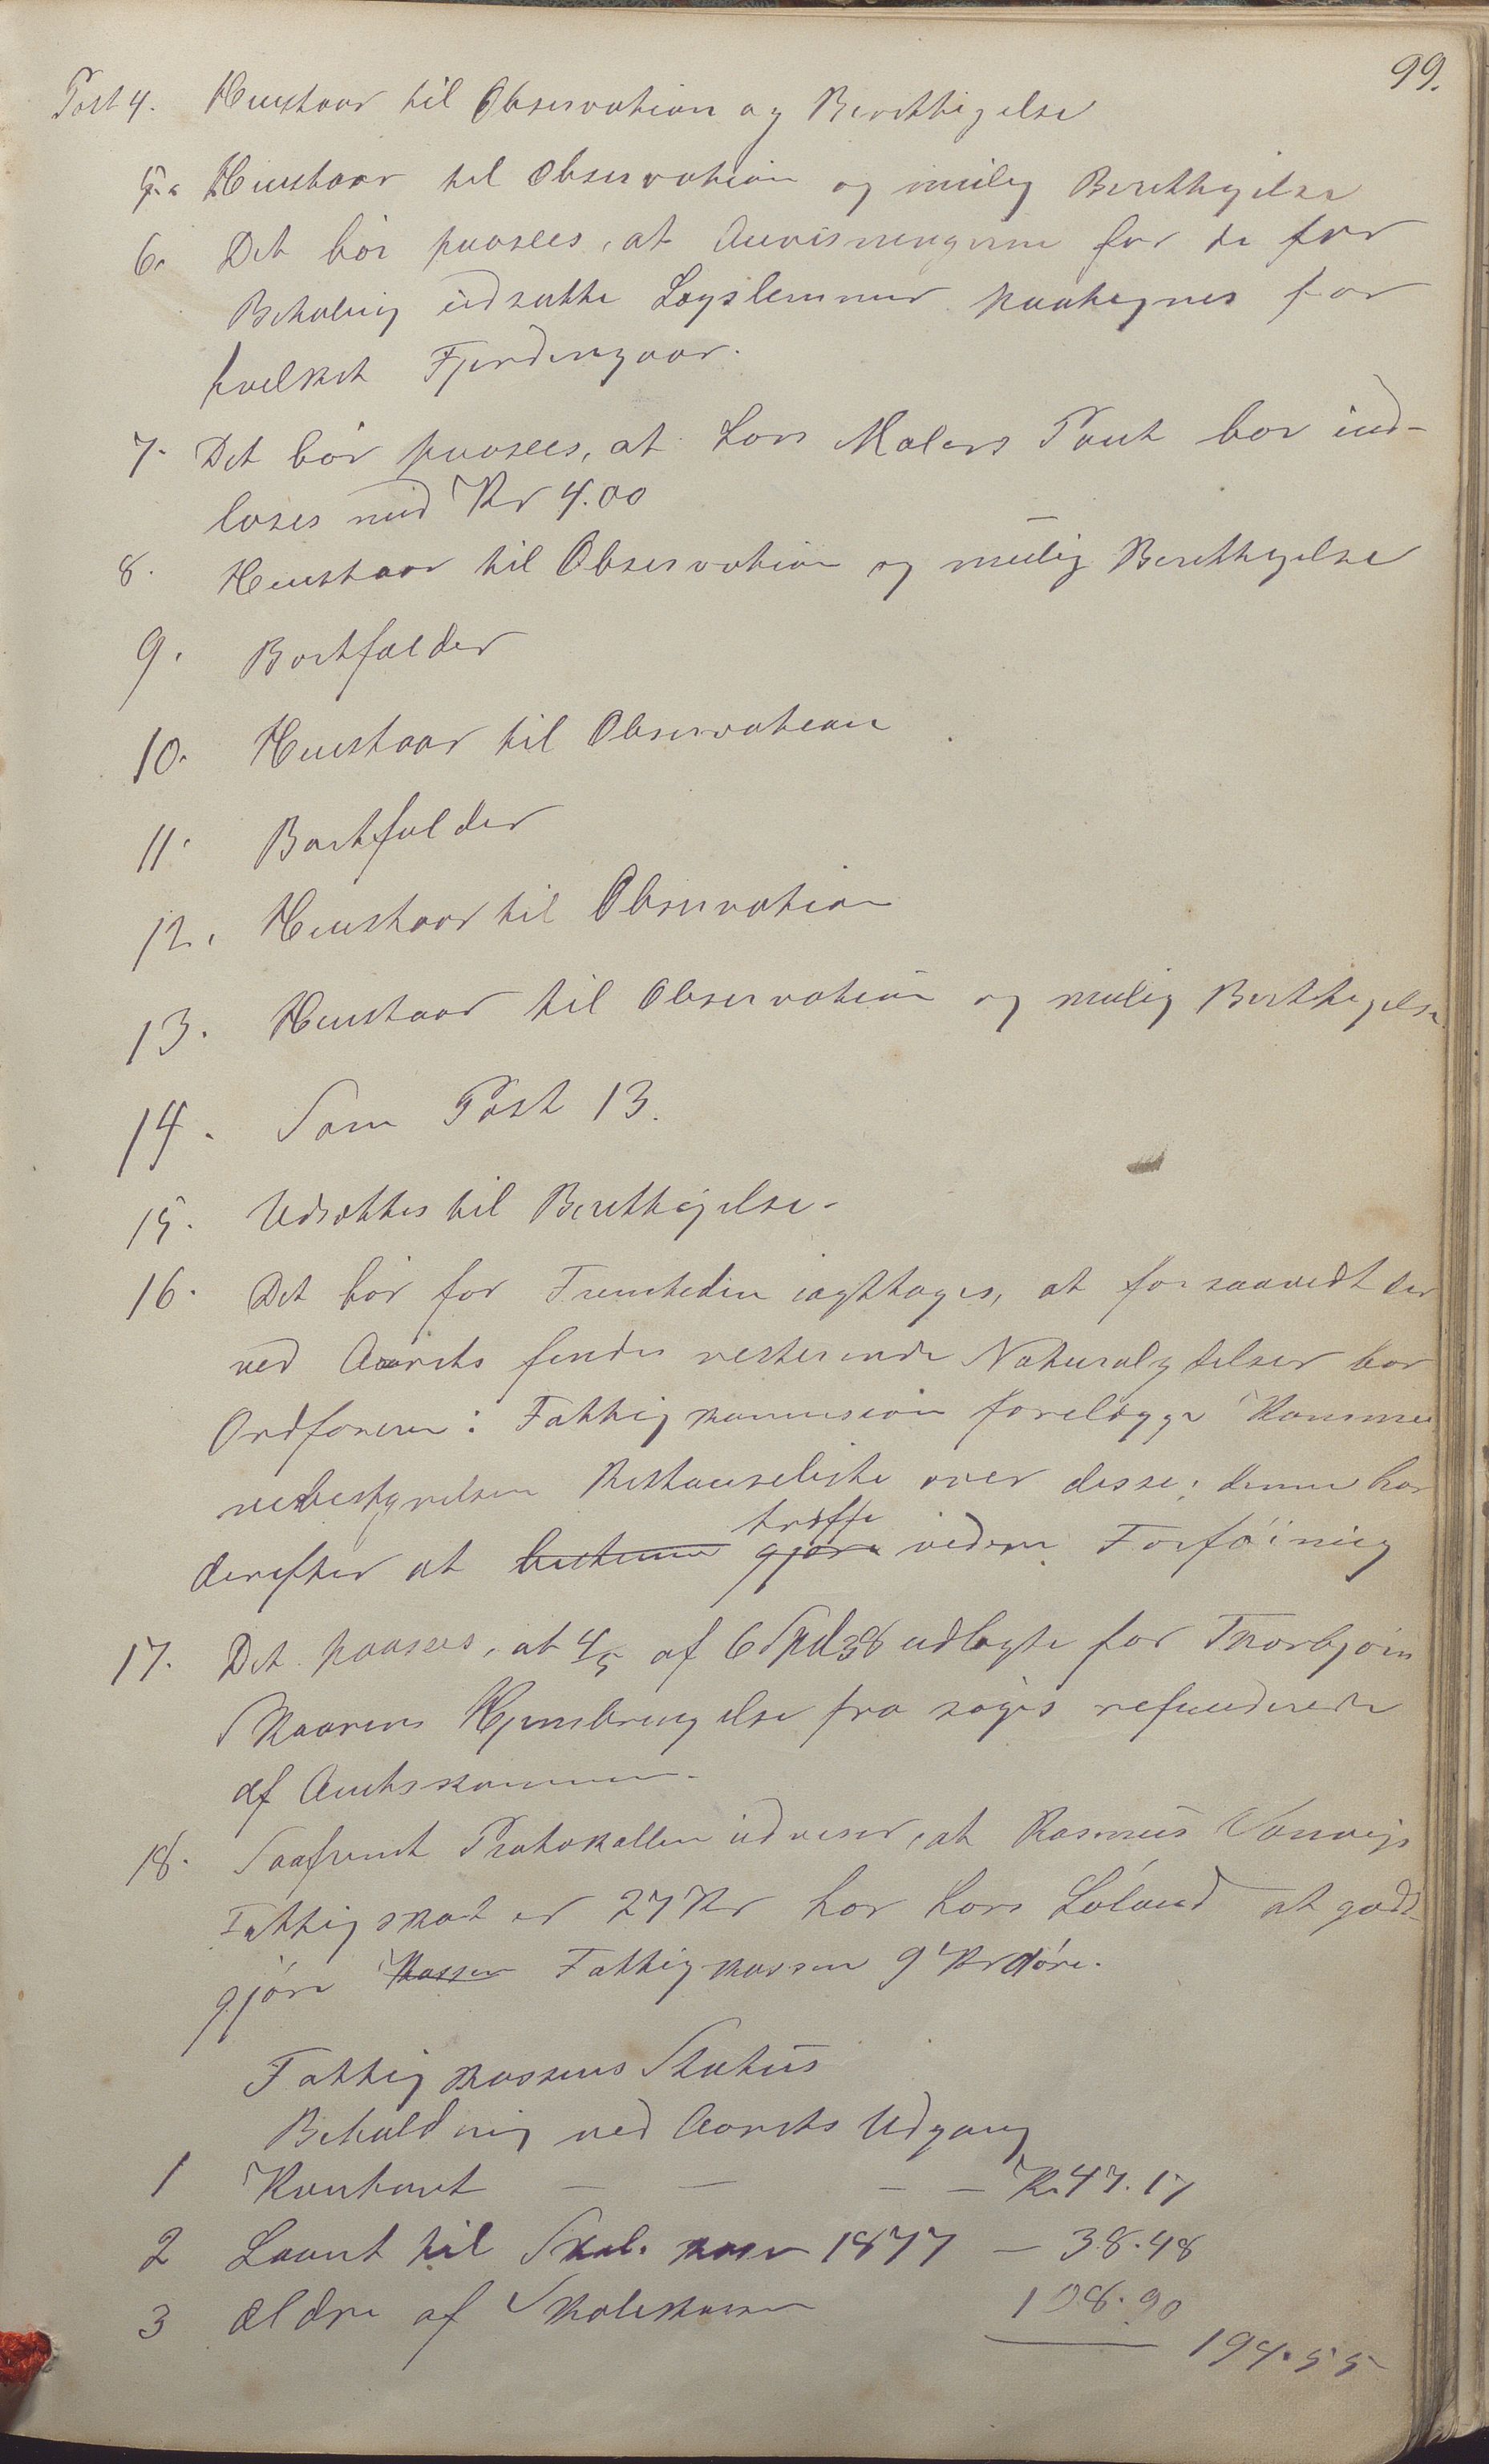 99.
Post 4. Henstaar til Observation og Berettigelse
5. Henstaar til Observation og mulig Berettigelse
6. Det bör paasees, at Anvisningerne for de for
Betaling udsatte Lægslemmer paategnes for
hvilket Fjerdingaar.
7. Det bör paasees, at Lars Malers Pant bör ind-
løses med Kr 4.00
8. Henstaar til Observation og mulig Berettigelse
9. Bortfalder
10. Henstaar til Observation
11. Bortfalder
12. Henstaar til Observation
13. Henstaar til Observation og mulig Berettigelse
14. Som Post 13.
15. Udsættes til Berettigelse.
16. Det bör for Fremtiden iagttages, at forsaavidt der
ved Aarets findes resterende Naturalydelser bör
Ordføreren i Fattigkommision forelægge Kommu
nebestyrelsen Restanseliste over disse; denne har
træffe
derefter at bestemme gjøre videre Forföining
17. Det paasees, at 4/5 af 6 Spd 38 udlagte for Thorbjörn
Skaarens Hjembringelse fra söges refunderede
af Amtskommunen.
18. Saafremt Protokollen udviser, at Rasmus
Fattigskat er 27 Kr har Lars Löland at godt-
gjöre Kassen Fattigkassen 9 Kr
Fattigkassens Status
Beholdning ved Aarets Udgang
1 Kontant — — — — Kr. 47.17
2 Laant til Skol. kasse 1877 — 38.48
3 ældre af Skolekassen 108.90
194.55